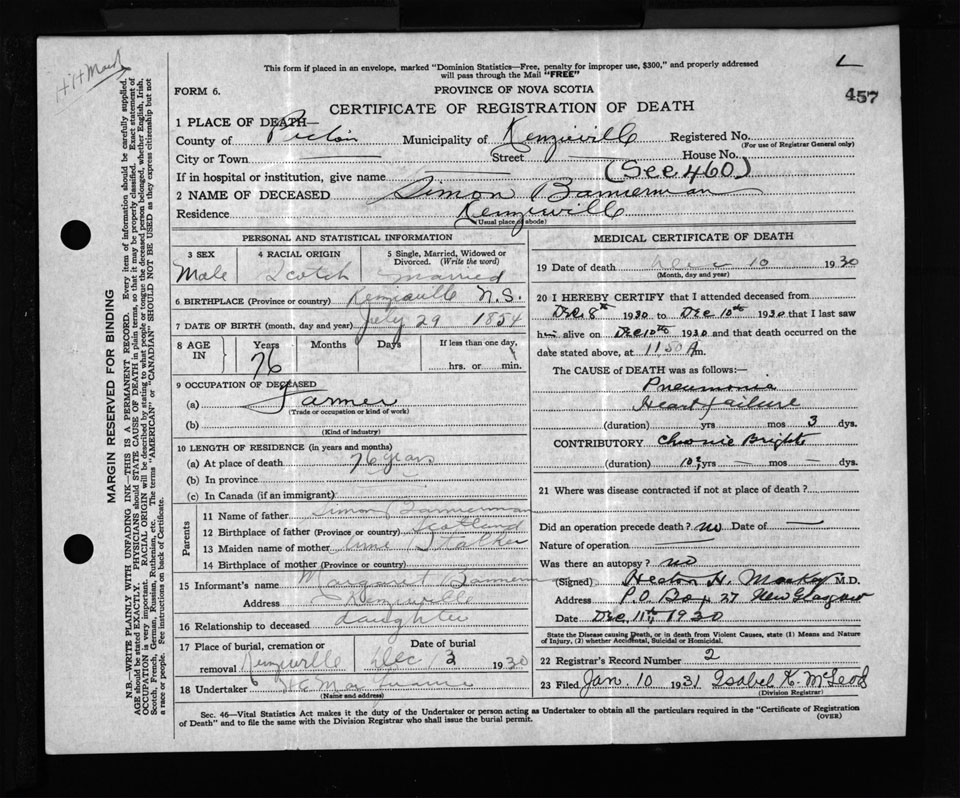 This form if placed in an envelope, marked "Dominion Statistics—Free, penalty for improper use, $300," and properly addressed
will pass through the Mail "FREE"
L
457
FORM 6.
PROVINCE OF NOVA SCOTIA
CERTIFICATE OF REGISTRATION OF DEATH
1 PLACE OF DEATH
County of Pictou Municipality of Kenzieville Registered No.
(For use of Registrar General only)
City or Town Street House No.
If in hospital or institution, give name (See 460)
2 NAME OF DECEASED Simon Bannerman
Residence Kenzieville
(Usual place of abode)
PERSONAL AND STATISTICAL INFORMATION
3 SEX 4 RACIAL ORIGIN 5 Single, Married, Widowed or
Divorced. (Write the word)
Male Scotch Married
6 BIRTHPLACE (Province or country) Kenzieville N.S.
7 DATE OF BIRTH (month, day and year) July 29 1854
8 AGE IN Years Months Days If less than one day,
76 hrs. or min.
9 OCCUPATION OF DECEASED
(a) Farmer
(Trade or occupation or kind of work)
(b)
(Kind of industry)
10 LENGTH OF RESIDENCE (in years and months)
(a) At place of death 76 years
(b) In province
(c) In Canada (if an immigrant)
Parents
11 Name of father Simon Bannerman
12 Birthplace of father (Province or country) Scotland
13 Maiden name of mother Stalker
14 Birthplace of mother (Province or country)
15 Informant's name Margaret Bannerman
Address Kenzieville
16 Relationship to deceased daughter
17 Place of burial, cremation or Date of burial
removal Kenzieville Dec 13 1930
18 Undertaker
(Name and address)
MEDICAL CERTIFICATE OF DEATH
19 Date of death Dec 10 1930
(Month, day and year)
20 I HEREBY CERTIFY that I attended deceased from
Dec 8th 1930 to Dec 10th 1930 that I last saw
him alive on Dec 10th 1930 and that death occurred on the
date stated above, at 11.50 A m.
The CAUSE of DEATH was as follows:—
Pneumonia
Heart failure
(duration) yrs mos 3 dys.
CONTRIBUTORY Chronic Brights
(duration) 10 yrs — mos — dys.
21 Where was disease contracted if not at place of death?
Did an operation precede death? no Date of —
Nature of operation
Was there an autopsy? no
(Signed) H. MacKay M.D.
Address P.O. Box 27 New Glasgow
Date Dec. 11th, 1930
State the Disease causing Death, or in death from Violent Causes, state (1) Means and Nature
of Injury, (2) whether Accidental, Suicidal or Homicidal.
22 Registrar's Record Number 2
23 Filed Jan. 10 1931 Isabel K. McLeod
(Division Registrar)
Sec. 46—Vital Statistics Act makes it the duty of the Undertaker or person acting as Undertaker to obtain all the particulars required in the "Certificate of Registration
of Death" and to file the same with the Division Registrar who shall issue the burial permit.
(OVER)
MARGIN RESERVED FOR BINDING
N.B.—WRITE PLAINLY WITH UNFADING INK—THIS IS A PERMANENT RECORD. Every item of information should be carefully supplied.
AGE should be stated EXACTLY. PHYSICIANS should STATE CAUSE OF DEATH in plain terms, so that it may be properly classified. Exact statement of
OCCUPATION is very important. RACIAL ORIGIN will be described by stating to what people or tongue the deceased person belonged, whether English, Irish,
Scotch, French, German, Russian, Ruthenian, etc. The terms "AMERICAN" or "CANADIAN" SHOULD NOT BE USED as they express citizenship but not
a race or people. See instructions on back of Certificate.